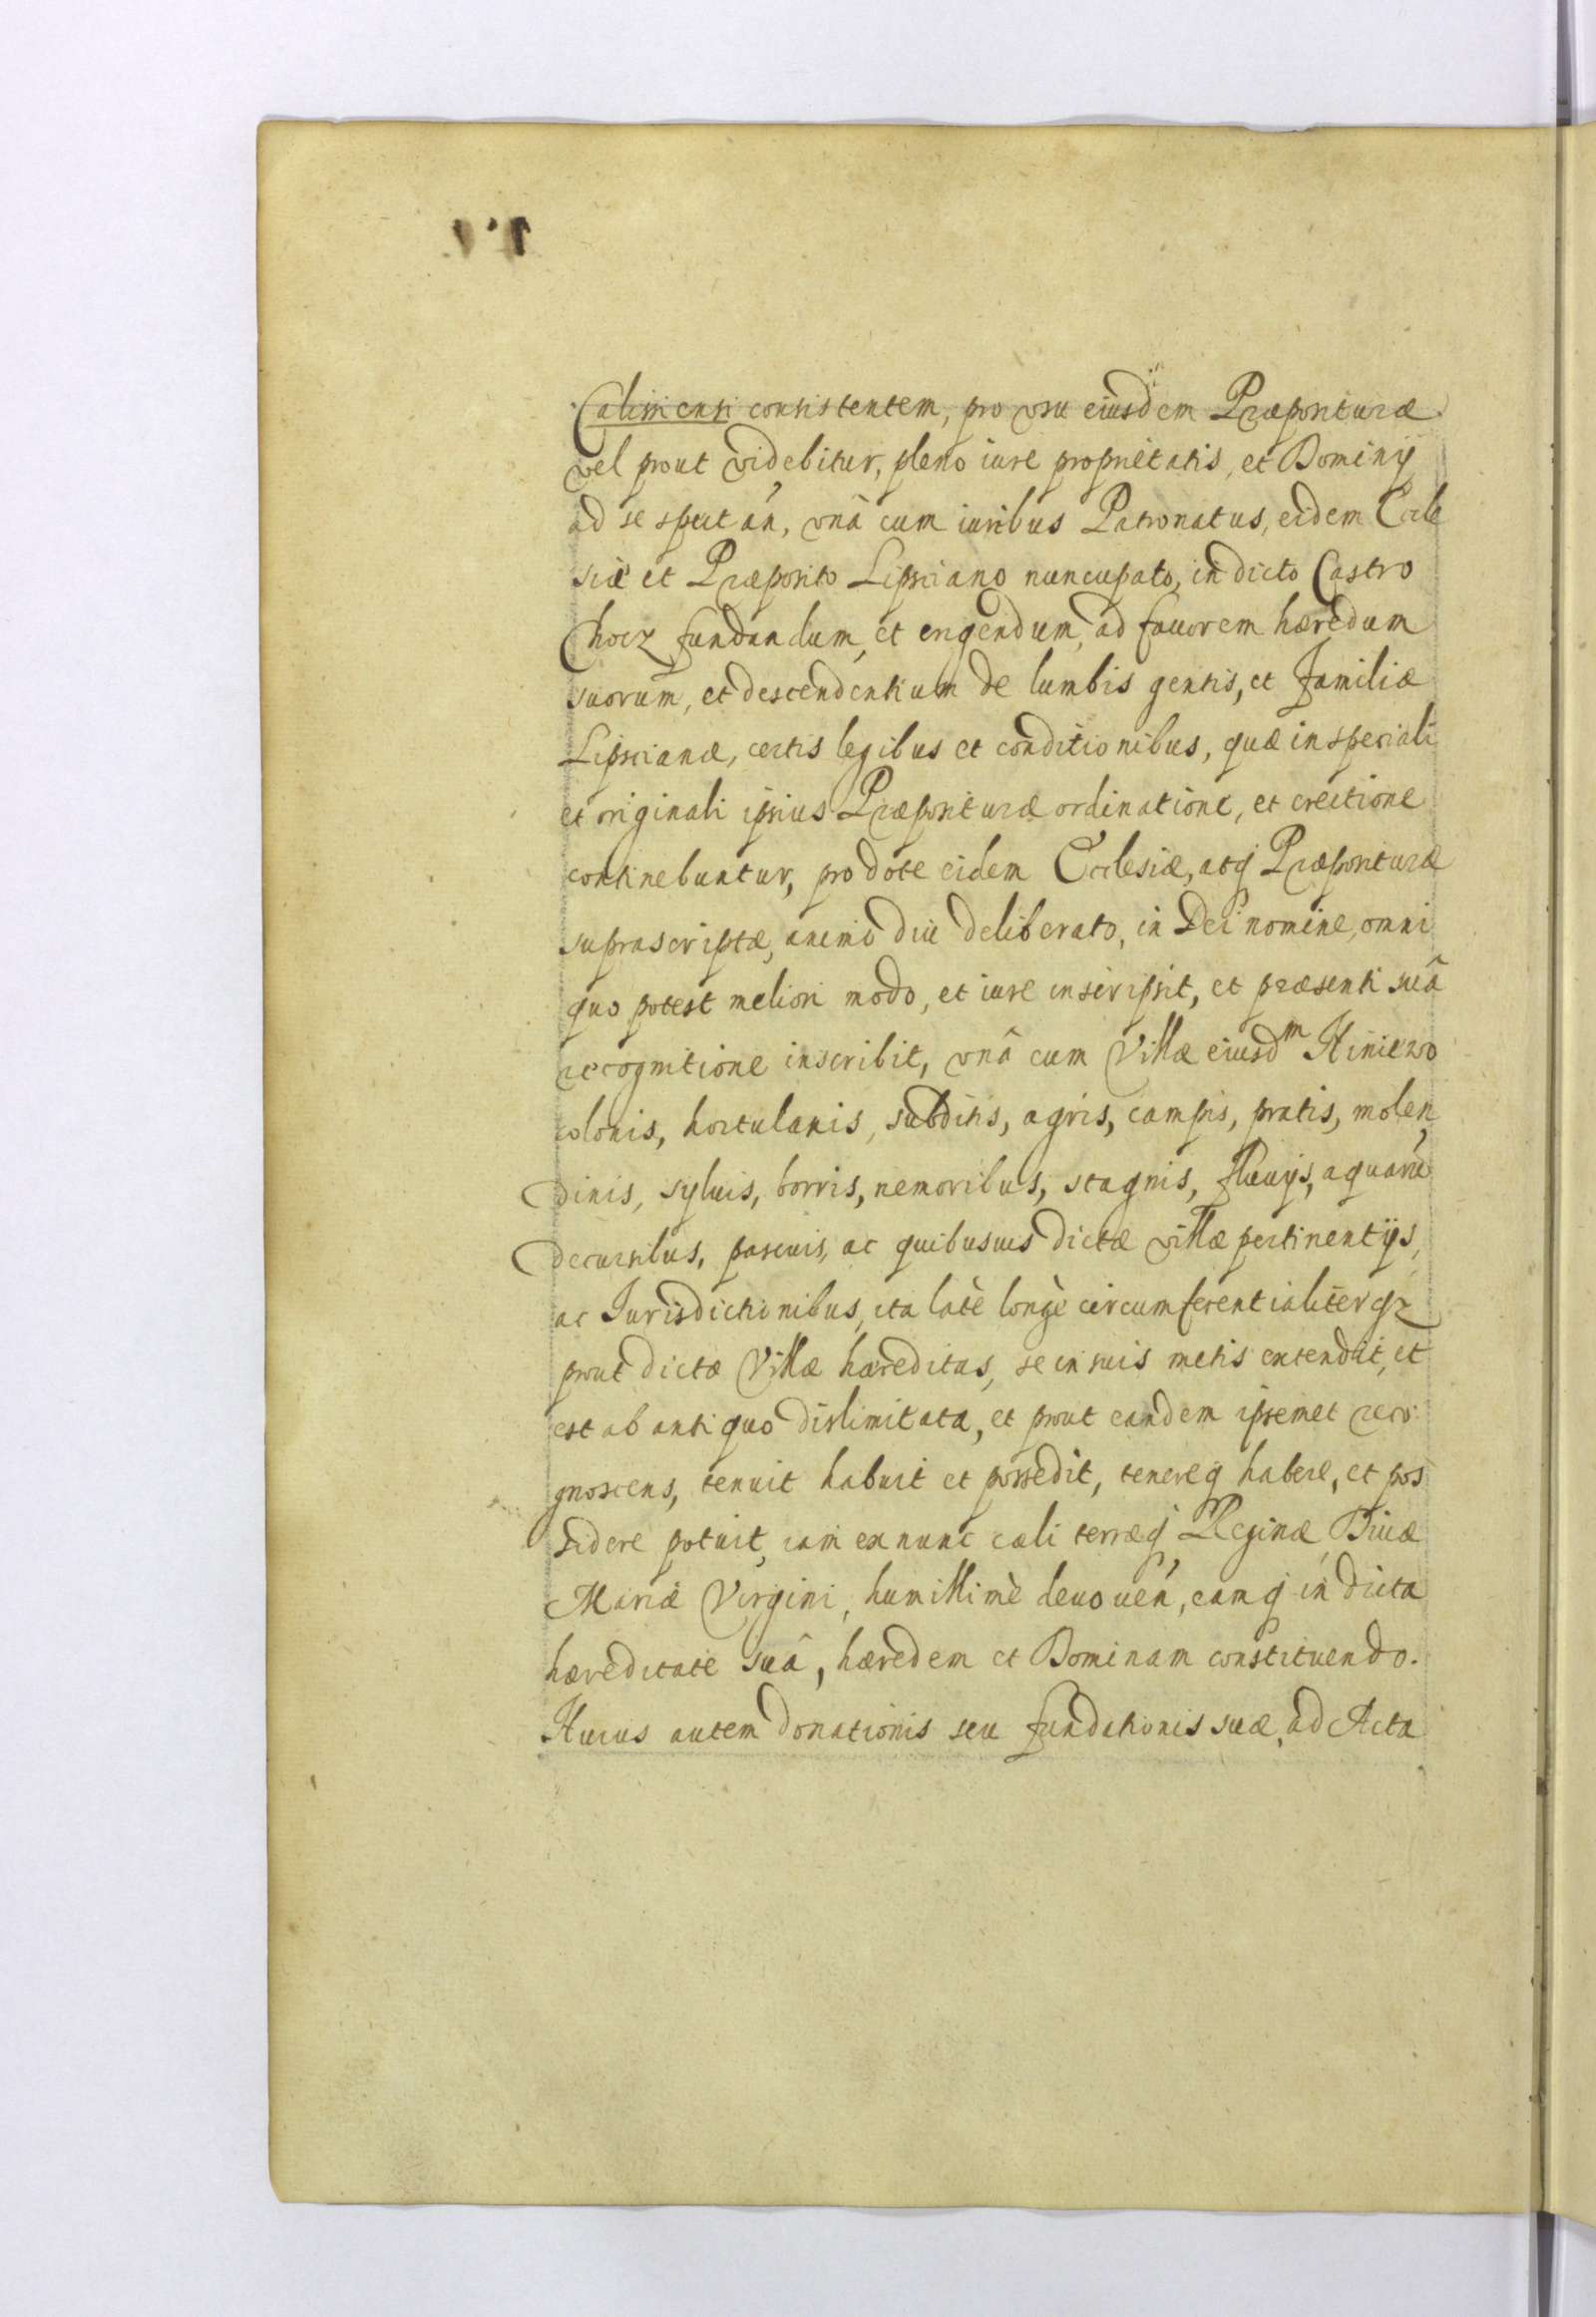 Calissiensi consistentem, pro usu eiusdem Præposituræ
vel prout videbitur, pleno iure proprietatis, et Dominij
ad se spectan, vnâ cum iuribus Patronatus, eidem Eccle
siæ et Præposito Lipsciano nuncupato, in dicto Castro
Chocz fundandum, et erigendum, ad fauorem hæredum
suorum, et descendentium de lumbis gentis, et Familiæ
Lipscianæ, certis legibus et conditionibus, quæ in speciali
et originali ipsius Præposituræ ordinatione, et erectione
continebuntur, pro dote eidem Ecclesiæ, atq Præposituræ
suprascriptæ, animo diu deliberato, in Dei nomine, omni
quo potest meliori modo, et iure inscripsit, et præsenti suâ
recognitione inscribit, vnâ cum Villæ eiusdm Kiniewo
colonis, hortulanis, subditis, agris, campis, pratis, molen
dinis, syluis, borris, nemoribus, stagnis, fluuijs, aquarū
decursibus, pascuis, ac quibusuis dictæ villæ pertinentijs,
ac Jurisdictionibus, ita latè longè circumferentialiterq
prout dictæ Villæ hæreditas, se in suis metis extendit, et
est ab antiquo dislimitata, et prout eandem ipsemet reco
gnoscens, tenuit habuit et possedit, tenereq habere, et pos
sidere potuit, iam ex nunc cæli terræq Reginæ Diuæ
Mariæ Virgini, humillimè deuouen, eamq in dicta
hæreditate suâ, hæredem et Dominam constituendo.
Huius autem donationis seu fundationis suæ, ad Acta